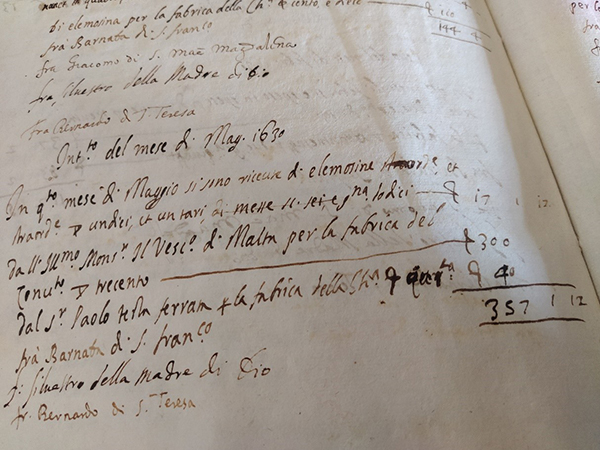 di elemosina per la fabrica della Ch.ª
110
fra Barnaba di S. franc.o
144 4
fra Giacomo di S. Mar.a Magdalena
fra Siluestro della Madre di Dio
fra Bernardo di S. Teresa
Int.to del mese di Mag. 1630
In q.to mese di Maggio si sono riceuuti di elemosine et
undici, et un tari di messe su. sei, e 17 1 12
dall' Ill.mo Mons.r Il Vesc.o di Malta per la fabrica del
Conu.to trecento 300
dal S.r Paolo testa ferrata la fabrica della Ch.ª 40
357 1 12
fra Barnaba di S. franc.o
f. Siluestro della madre di Dio
fr. Bernardo di S. Teresa